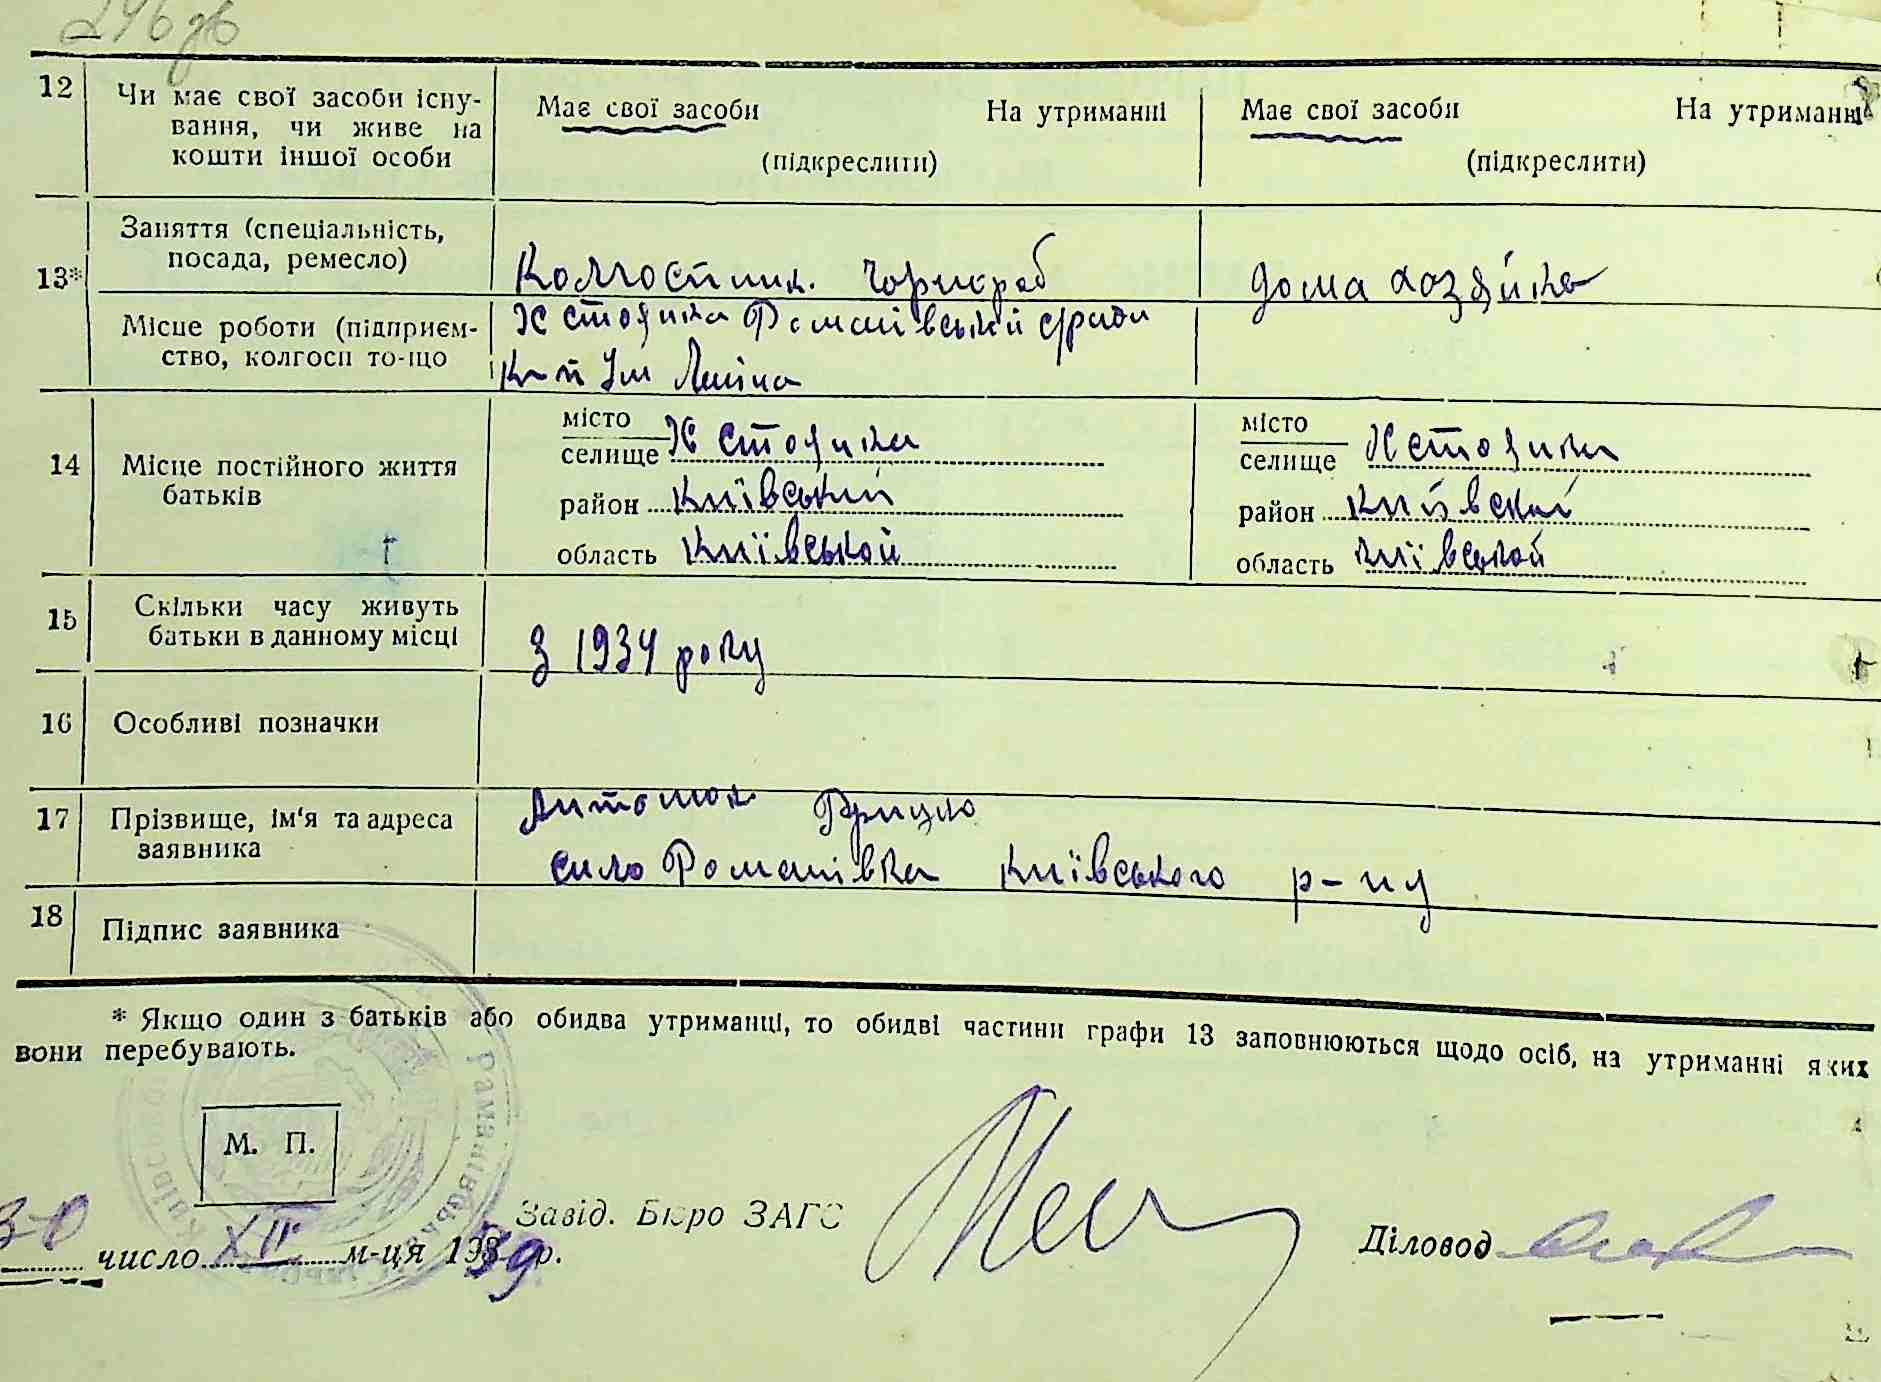 246 зв
12 Чи має свої засоби існу-
вання, чи живе на
кошти іншої особи
Має свої засоби На утриманні
(підкреслити)
Має свої засоби На утриманні
(підкреслити)
13*
Заняття (спеціальність,
посада, ремесло)
Колгоспник. Чорнороб
дома хозяйка
Місце роботи (підприєм-
ство, колгосп то-що
Романівській с/ради
Ім Леніна
14 Місце постійного життя
батьків
місто
селище
район Київський
область Київської
місто
селище
район Київский
область Київської
15 Скільки часу живуть
батьки в данному місці
З 1934 року
16 Особливі позначки
17 Прізвище, ім'я та адреса
заявника
Антонюк Грицко
село Романівка Київського р-ну
18 Підпис заявника
* Якщо один з батьків або обидва утриманці, то обидві частини графи 13 заповнюються щодо осіб, на утриманні яких
вони перебувають.
М. П.
Завід. Бюро ЗАГС
Діловод
30 число XII м-ця 1939 р.